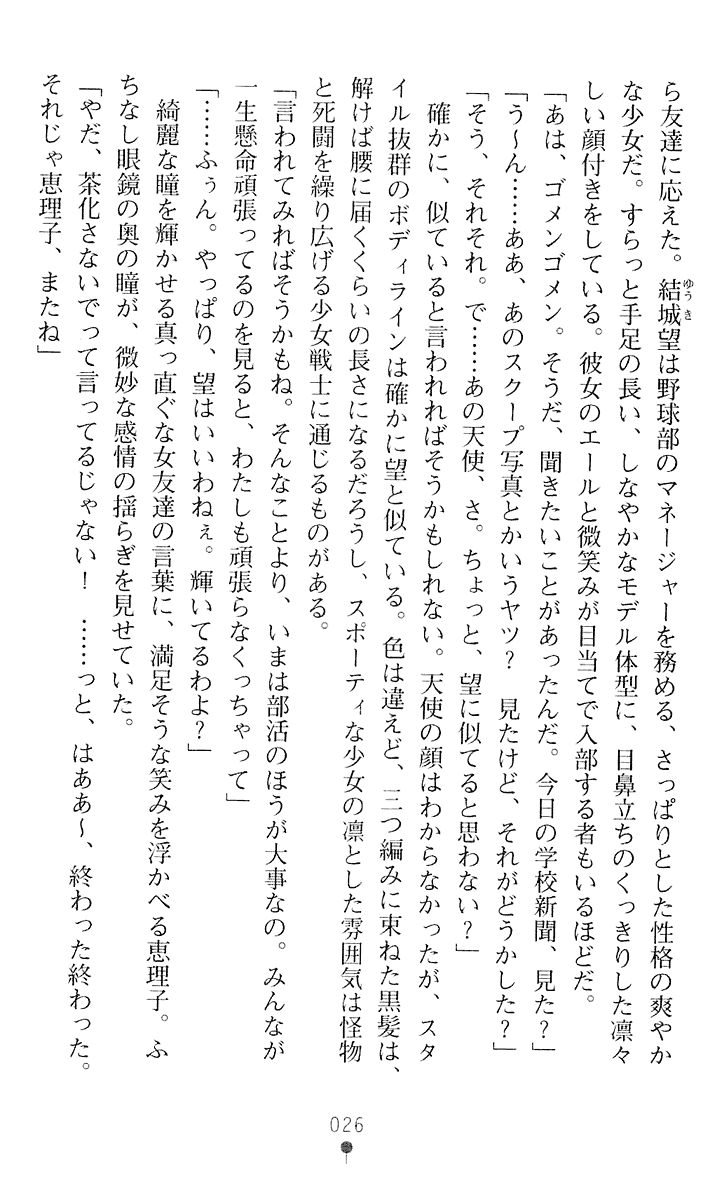 ら友達に応えた。結城望は野球部のマネージャーを務める、さっぱりとした性格の爽やか
な少女だ。すらっと手足の長い、しなやかなモデル体型に、目鼻立ちのくっきりした凛々
しい顔付きをしている。彼女のエールと微笑みが目当てで入部する者もいるほどだ。
「あは、ゴメンゴメン。そうだ、聞きたいことがあったんだ。今日の学校新聞、見た？」
「う〜ん……ああ、あのスクープ写真とかいうヤツ？　見たけど、それがどうかした？」
「そう、それそれ。で……あの天使、さ。ちょっと、望に似てると思わない？」
　確かに、似ていると言われればそうかもしれない。天使の顔はわからなかったが、スタ
イル抜群のボディラインは確かに望と似ている。色は違えど、三つ編みに束ねた黒髪は、
解けば腰に届くくらいの長さになるだろうし、スポーティな少女の凛とした雰囲気は怪物
と死闘を繰り広げる少女戦士に通じるものがある。
「言われてみればそうかもね。そんなことより、いまは部活のほうが大事なの。みんなが
一生懸命頑張ってるのを見ると、わたしも頑張らなくっちゃって」
「……ふぅん。やっぱり、望はいいわねぇ。輝いてるわよ？」
　綺麗な瞳を輝かせる真っ直ぐな女友達の言葉に、満足そうな笑みを浮かべる恵理子。ふ
ちなし眼鏡の奥の瞳が、微妙な感情の揺らぎを見せていた。
「やだ、茶化さないでって言ってるじゃない！　……っと、はああ〜、終わった終わった。
それじゃ恵理子、またね」
ゆうき
026